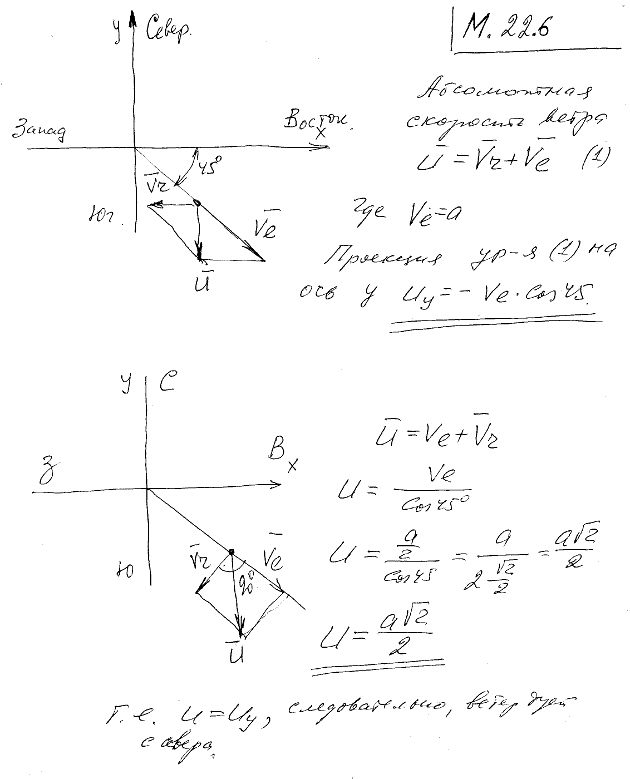 М. 22.6
У Север.
Запад
Восток.
x
45°
V̄r
Юг.
V̄e
Ū
Абсолютная
скорость ветра
Ū = V̄r + V̄e (1)
где Ve = a
Проекция ур-я (1) на
ось y Uy = - Ve · Cos 45
У С
З
В x
Ю
V̄r
90°
V̄e
Ū
Ū = Ve + V̄r
U = Ve / Cos 45°
U = (a/2) / Cos 45 = a / (2 √2/2) = a√2 / 2
U = a√2 / 2
Т.е. U = Uy, следовательно, ветер дует
с севера.